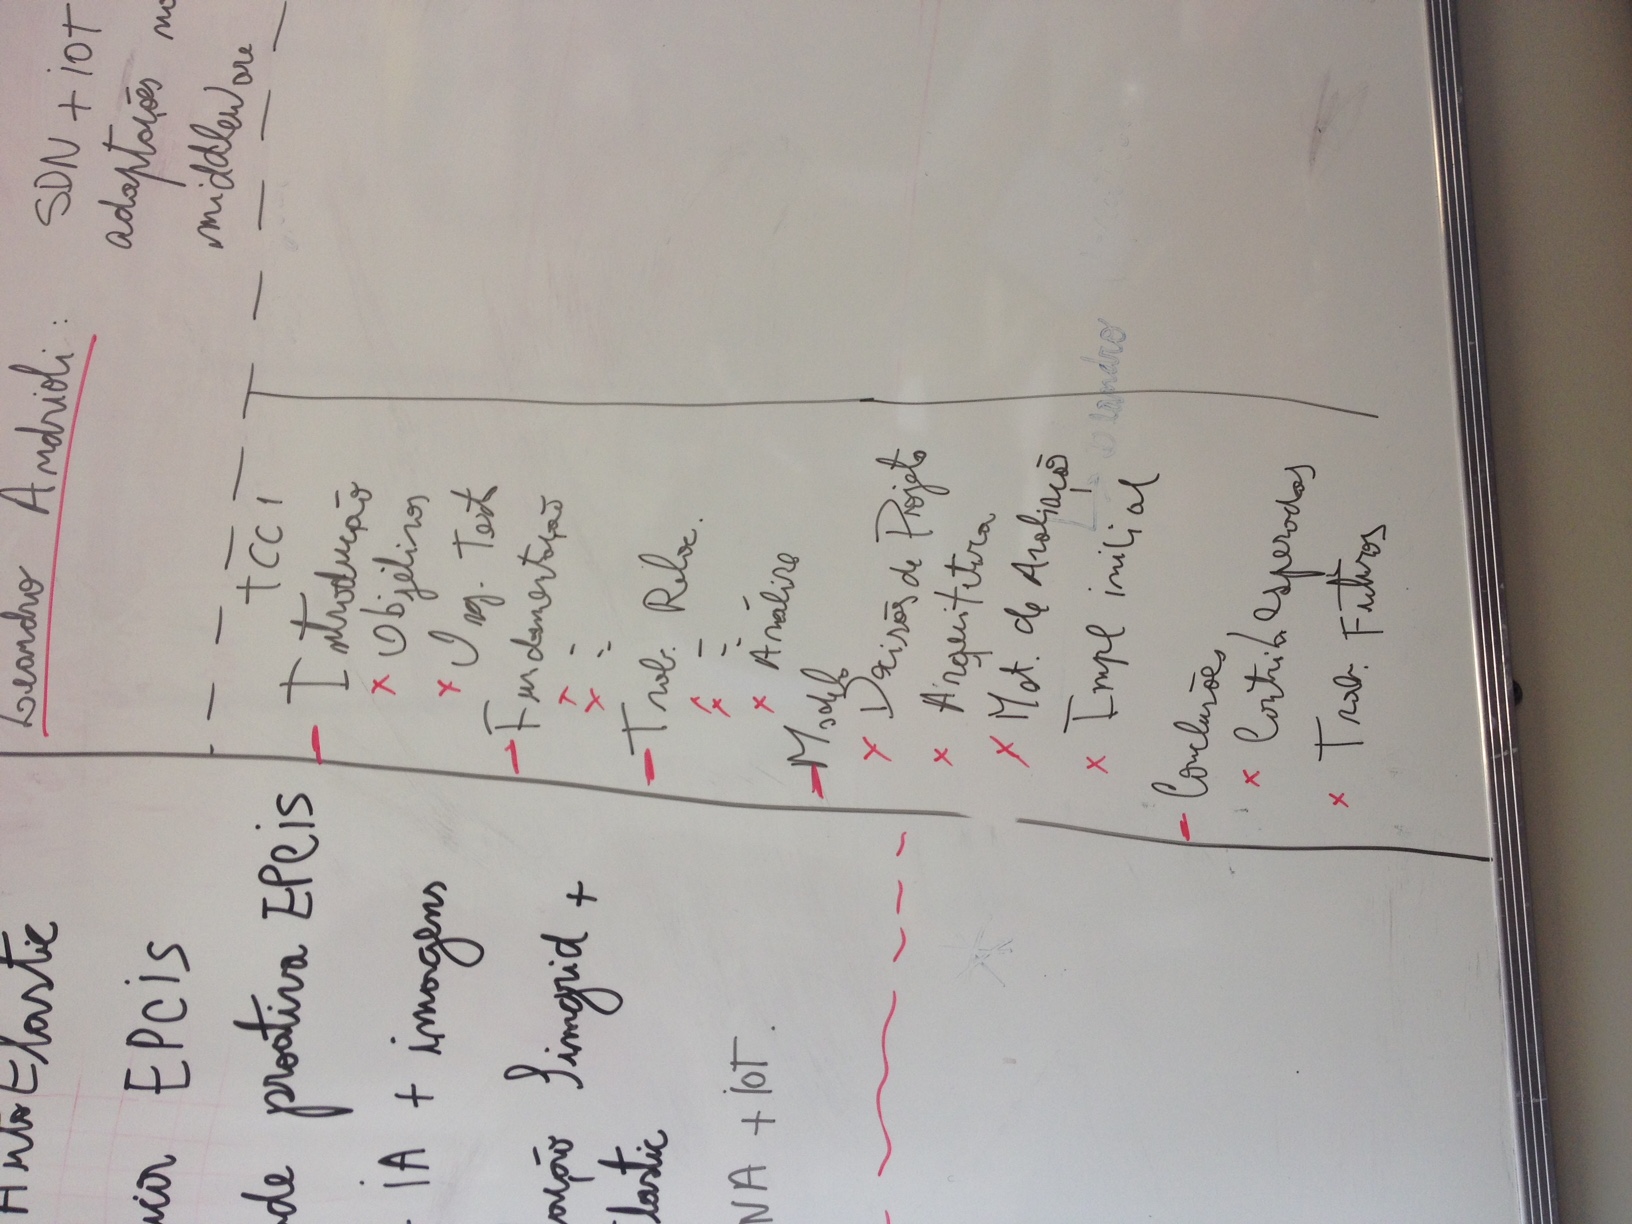 AutoElastic
EPCiS
de proativa EPCiS
IA + imagens
Simgrid +
lastic
NA + iOT.
Leandro Andrioli:
SDN + iOT
adaptações no
middleware
TCC 1
- Introdução
x Objetivos
x Org. Text
- Fundamentação
x =
x =
- Trab. Relac.
x -
x =
x Análise
- Modelo
x Decisões de Projeto
x Arquitetura
x Met. de Avaliação
x Impl inicial
Leandro
- Conclusões
x Contrib. esperadas
x Trab. Futuros